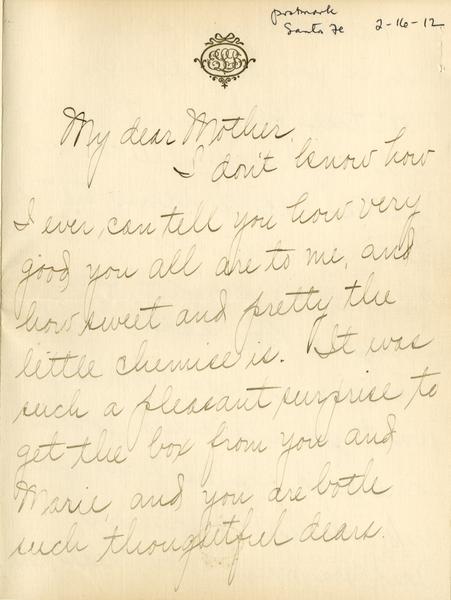 postmark
Santa Fe 2-16-12
My dear Mother,
I don't know how
I ever can tell you how very
good you all are to me, and
how sweet and pretty the
little chemise is. It was
such a pleasant surprise to
get the box from you and
Marie, and you are both
such thoughtful dears.